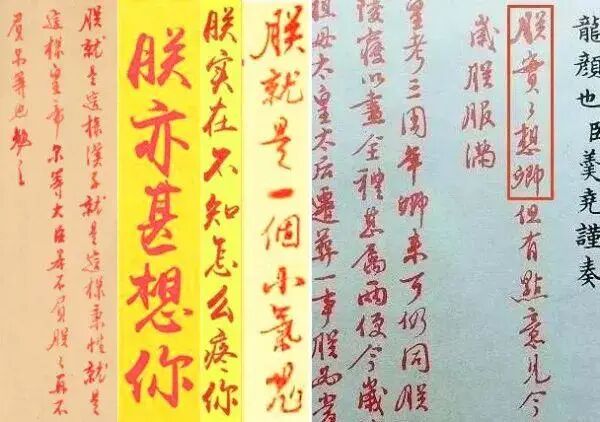 龍顏也臣羹堯謹奏
朕實〻想卿但有點意見今
歲朕服滿
皇考三周年卿来可仍同朕
陵寢以盡全禮甚屬兩便今歲
祖母太皇太后遷葬一事朕
朕就是一個小氣鬼
朕实在不知怎么疼你
朕亦甚想你
朕就是這樣漢子就是這樣秉性就是
這樣皇帝尔等大臣若不負朕〻再不
負尔等也勉之